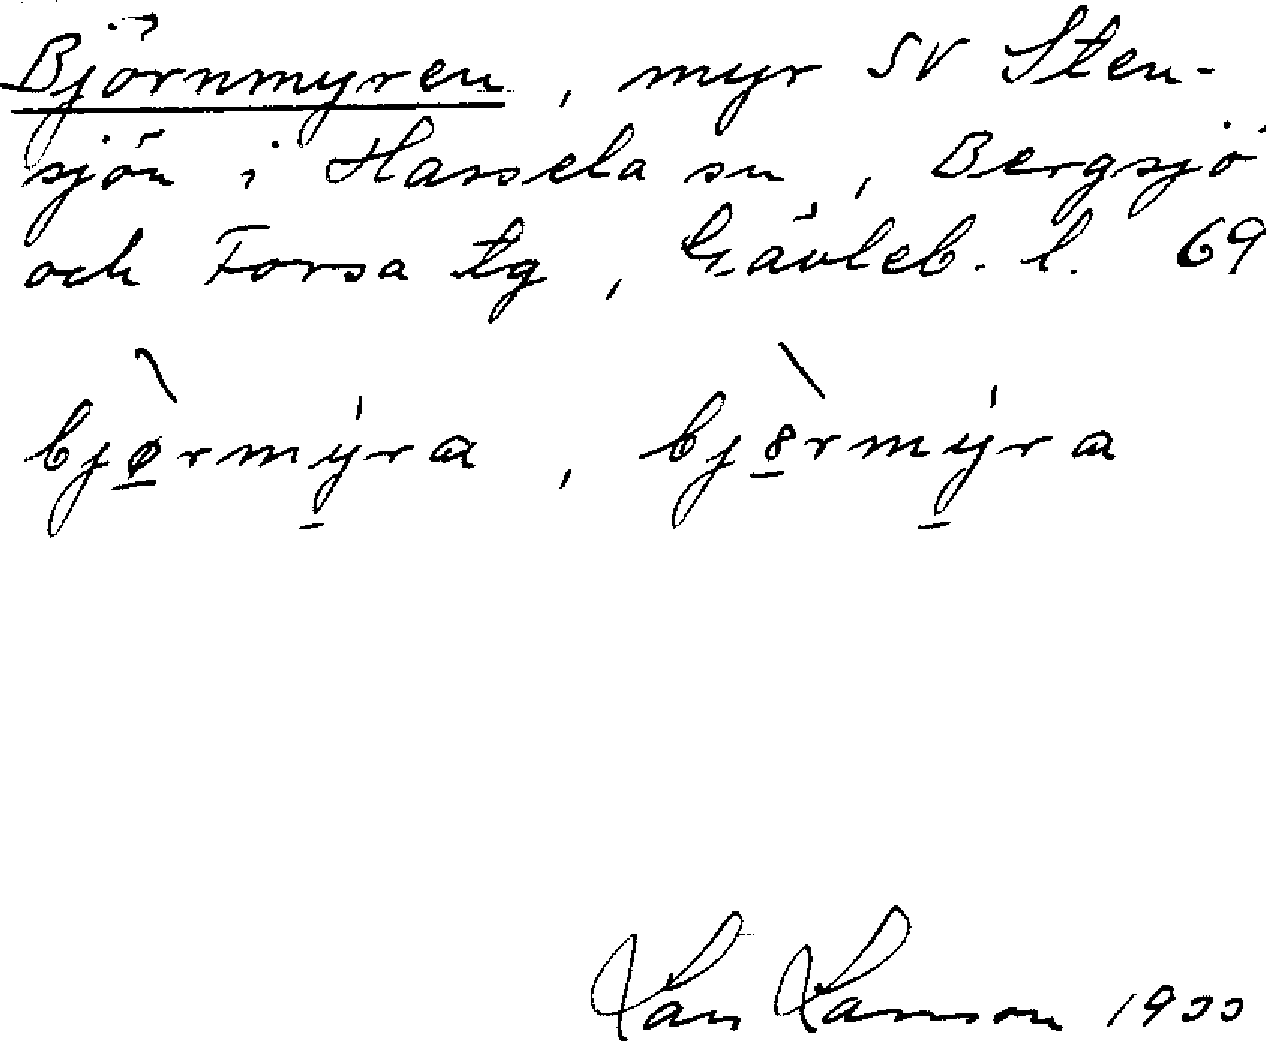 Björnmyren, myr SV Sten-
sjön i Hassela sn, Bergsjö
och Forsa tg, Gävleb. l. 69
bjø̲̀rmy̲̍ra, bj8̲̀rmy̲̍ra
Lars Larsson 1933